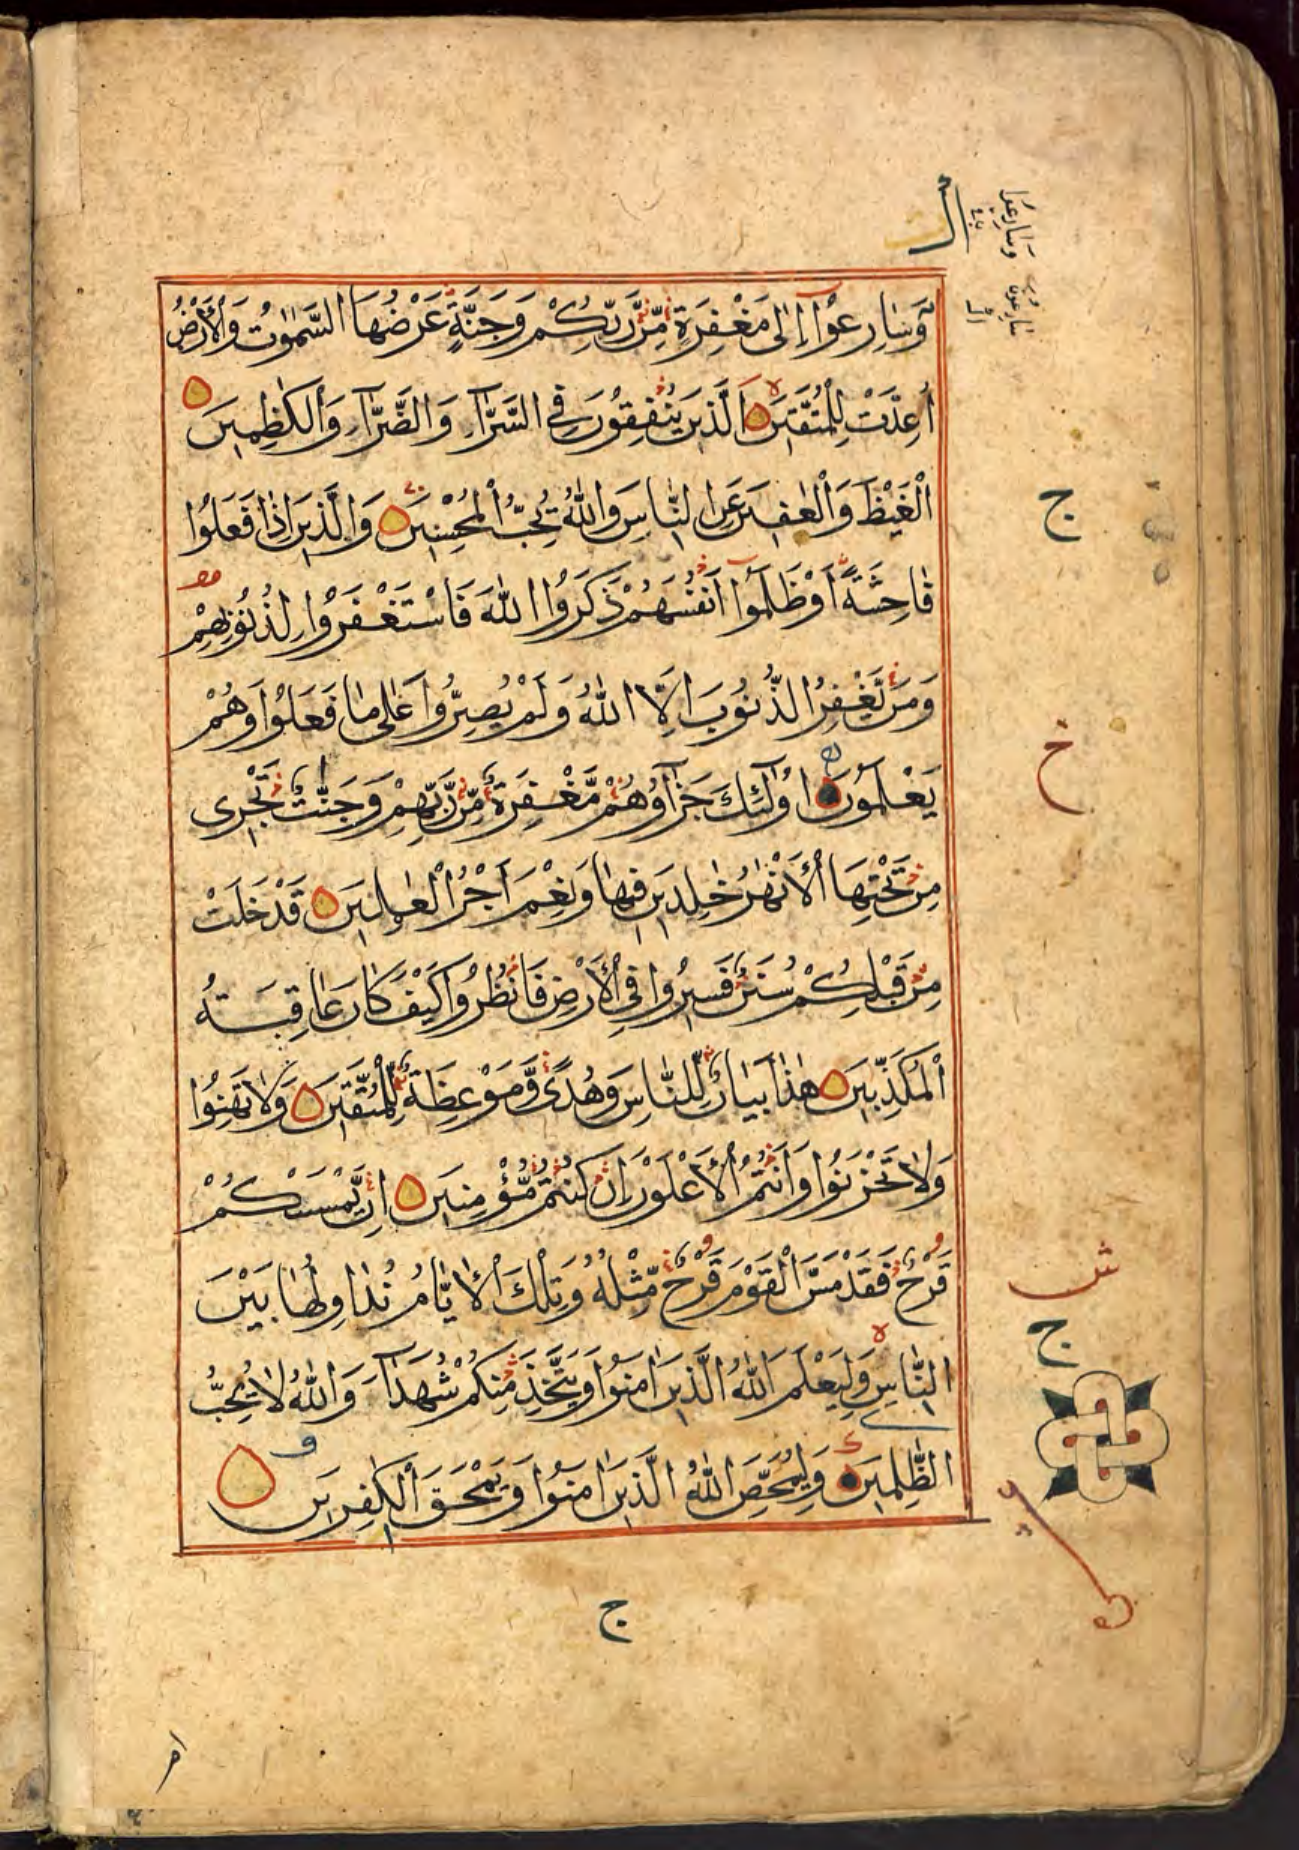 وَسَارِعُوْٓا اِلٰى مَغْفِرَةٍ مِّنْ رَّبِّكُمْ وَجَنَّةٍ عَرْضُهَا السَّمٰوٰتُ وَالْاَرْضُ
اُعِدَّتْ لِلْمُتَّقِيْنَ الَّذِيْنَ يُنْفِقُوْنَ فِى السَّرَّآءِ وَالضَّرَّآءِ وَالْكٰظِمِيْنَ
الْغَيْظَ وَالْعَافِيْنَ عَنِ النَّاسِ وَاللّٰهُ يُحِبُّ الْمُحْسِنِيْنَ وَالَّذِيْنَ اِذَا فَعَلُوْا
فَاحِشَةً اَوْ ظَلَمُوْٓا اَنْفُسَهُمْ ذَكَرُوا اللّٰهَ فَاسْتَغْفَرُوْا لِذُنُوْبِهِمْ
وَمَنْ يَّغْفِرُ الذُّنُوْبَ اِلَّا اللّٰهُ وَلَمْ يُصِرُّوْا عَلٰى مَا فَعَلُوْا وَهُمْ
يَعْلَمُوْنَ اُولٰٓئِكَ جَزَآؤُهُمْ مَّغْفِرَةٌ مِّنْ رَّبِّهِمْ وَجَنّٰتٌ تَجْرِى
مِنْ تَحْتِهَا الْاَنْهٰرُ خٰلِدِيْنَ فِيْهَا وَنِعْمَ اَجْرُ الْعٰمِلِيْنَ قَدْ خَلَتْ
مِنْ قَبْلِكُمْ سُنَنٌ فَسِيْرُوْا فِى الْاَرْضِ فَانْظُرُوْا كَيْفَ كَانَ عَاقِبَةُ
الْمُكَذِّبِيْنَ هٰذَا بَيَانٌ لِّلنَّاسِ وَهُدًى وَّمَوْعِظَةٌ لِّلْمُتَّقِيْنَ وَلَا تَهِنُوْا
وَلَا تَحْزَنُوْا وَاَنْتُمُ الْاَعْلَوْنَ اِنْ كُنْتُمْ مُّؤْمِنِيْنَ اِنْ يَّمْسَسْكُمْ
قَرْحٌ فَقَدْ مَسَّ الْقَوْمَ قَرْحٌ مِّثْلُهُ وَتِلْكَ الْاَيَّامُ نُدَاوِلُهَا بَيْنَ
النَّاسِ وَلِيَعْلَمَ اللّٰهُ الَّذِيْنَ اٰمَنُوْا وَيَتَّخِذَ مِنْكُمْ شُهَدَآءَ وَاللّٰهُ لَا يُحِبُّ
الظّٰلِمِيْنَ وَلِيُمَحِّصَ اللّٰهُ الَّذِيْنَ اٰمَنُوْا وَيَمْحَقَ الْكٰفِرِيْنَ
ج
خ
ش
ج
ج